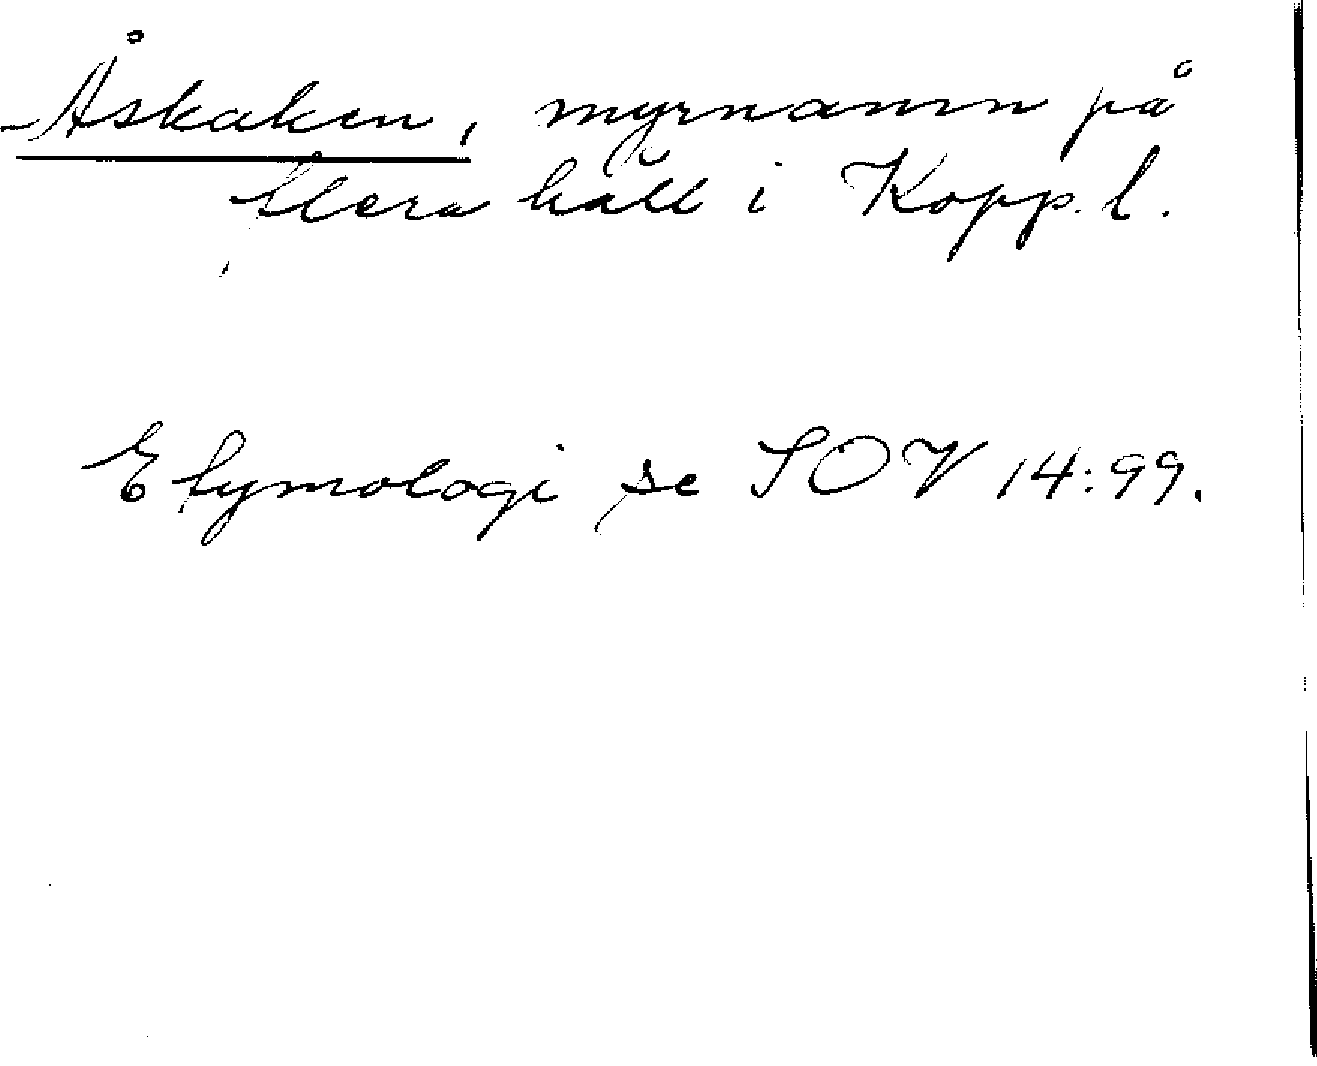 Åskaken, myrnamn på
flera håll i Kopp. l.
Etymologi se SOV 14:99.